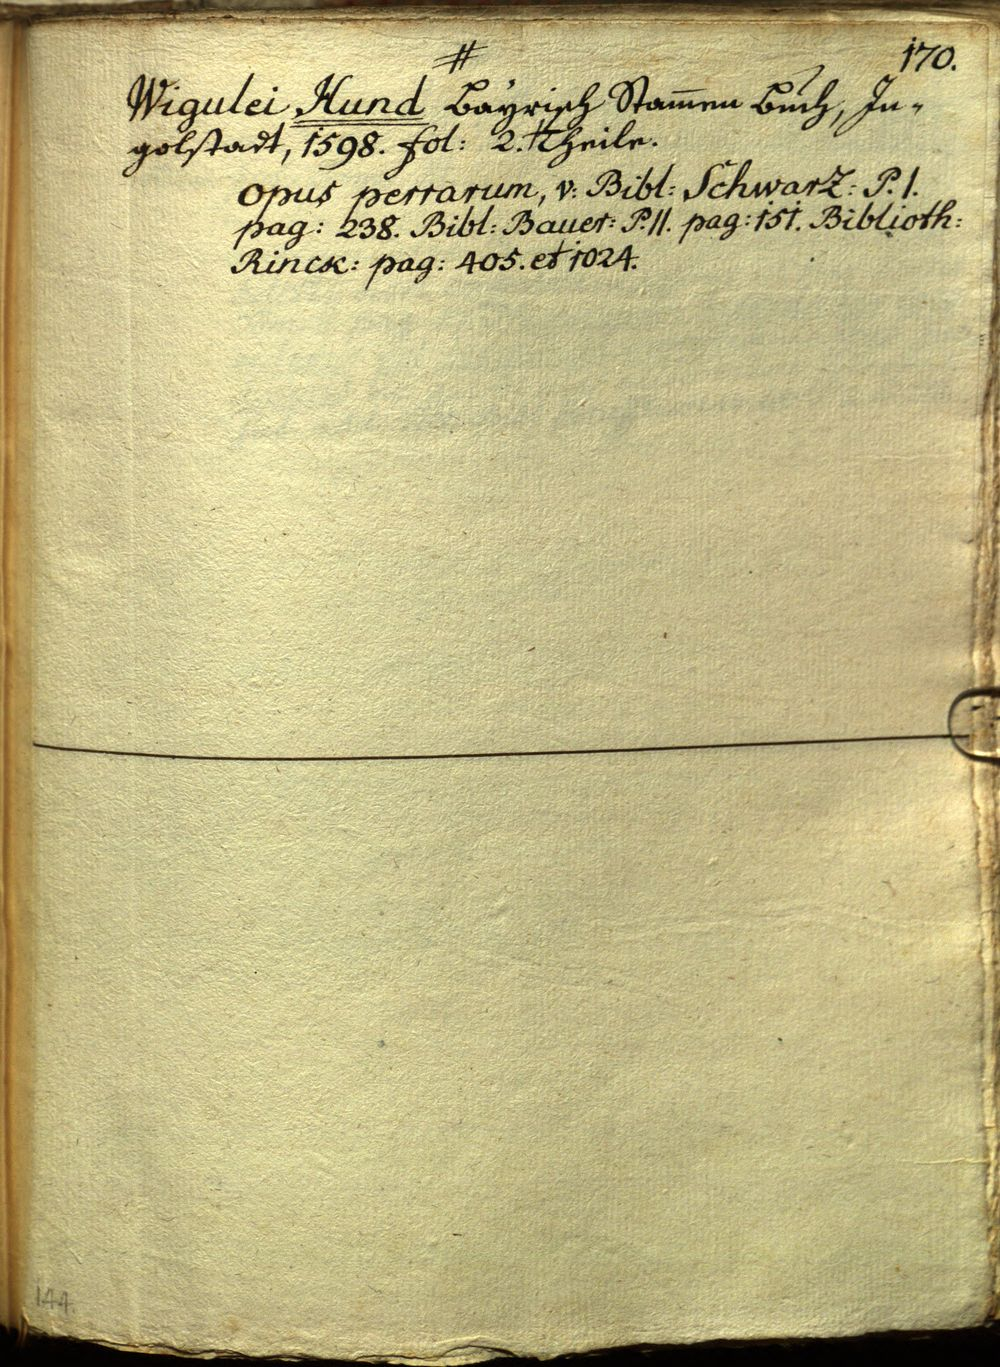 #
170.
Wigulei Hund Bayrisch Stam̅en Buch, In-
golstadt, 1598. fol: 2. Theile.
opus perrarum, v: Bibl: Schwarz: P. I.
pag: 238. Bibl: Bauer: P. II. pag: 151. Biblioth:
Rinck: pag: 405. et 1024.
144.